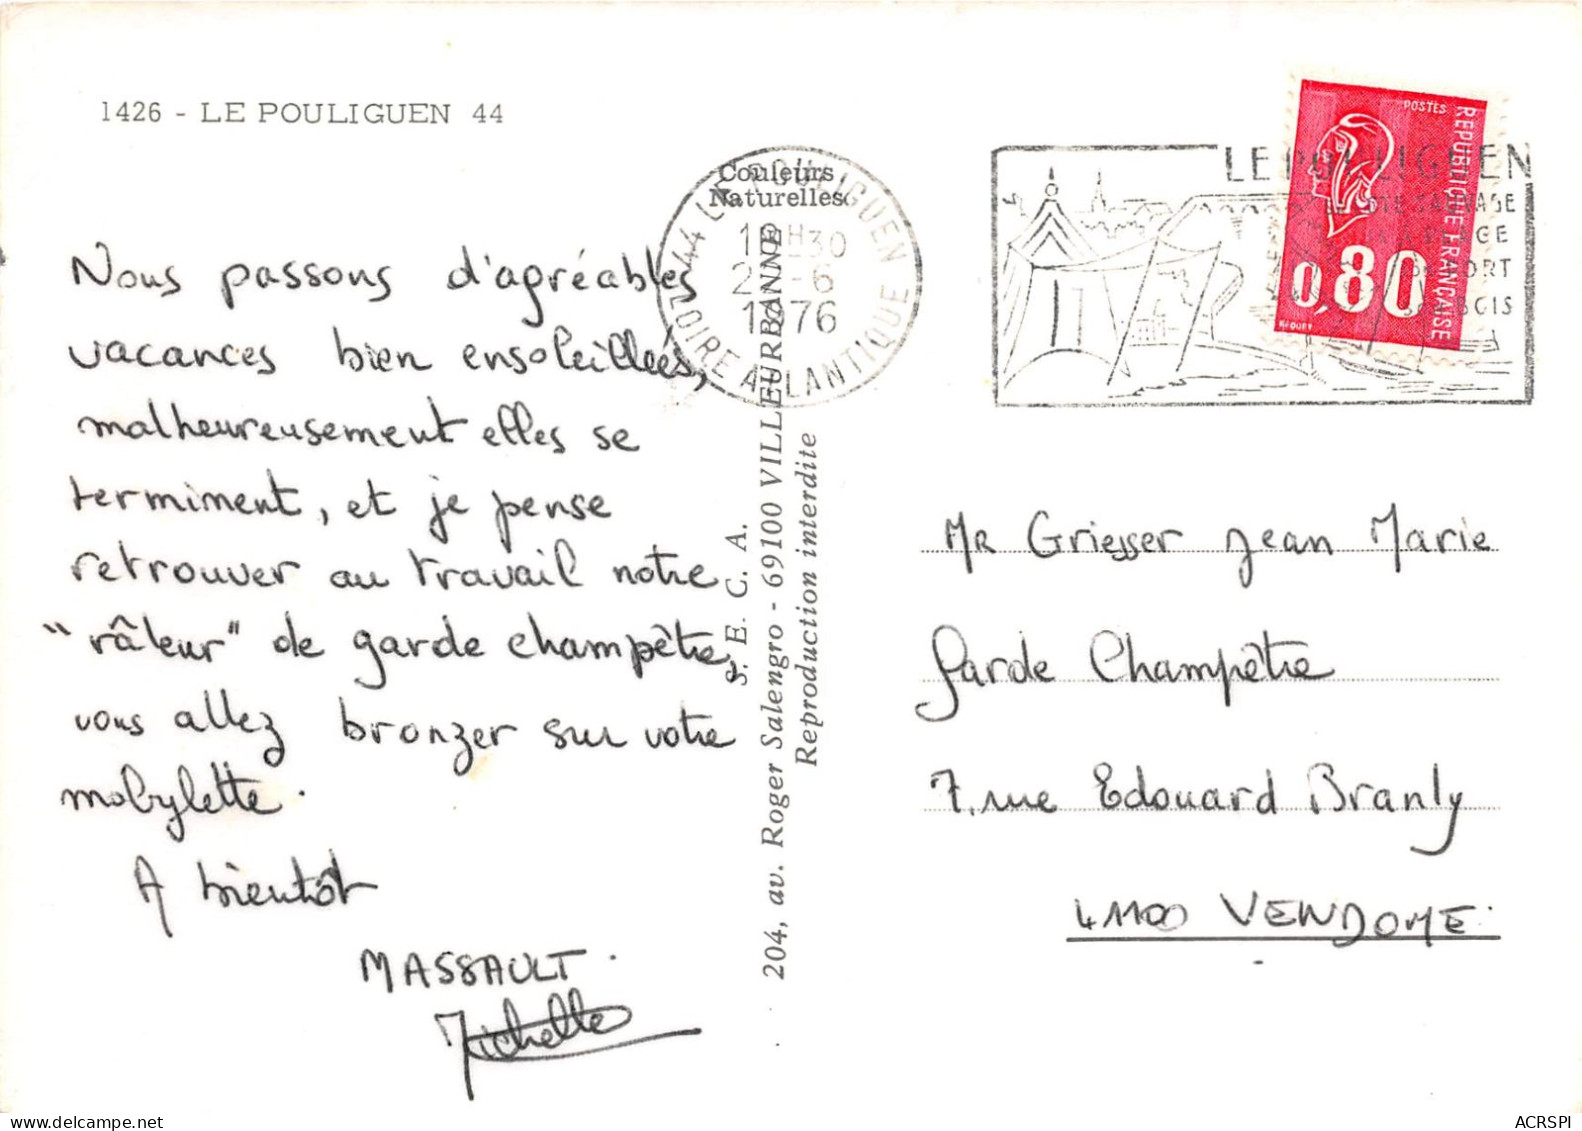 1426 - LE POULIGUEN 44
Couleurs
Naturelles
44 LE POULIGUEN
H30
-6
1976
LOIRE ATLANTIQUE
LE POULIGUEN
COTE SAUVAGE
CONFORT
BOIS
POSTES
REPUBLIQUE FRANÇAISE
0,80
Nous passons d'agréables
vacances bien ensoleillées,
malheureusement elles se
terminent, et je pense
retrouver au travail notre
"râleur" de garde champêtre,
vous allez bronzer sur votre
mobylette.
A bientôt
MASSAULT.
Michelle
S. E. C. A.
204, av. Roger Salengro - 69100 VILLEURBANNE
Reproduction interdite
Mr Griesser Jean Marie
Garde Champêtre
7, rue Edouard Branly
41100 VENDOME.
ACRSPI